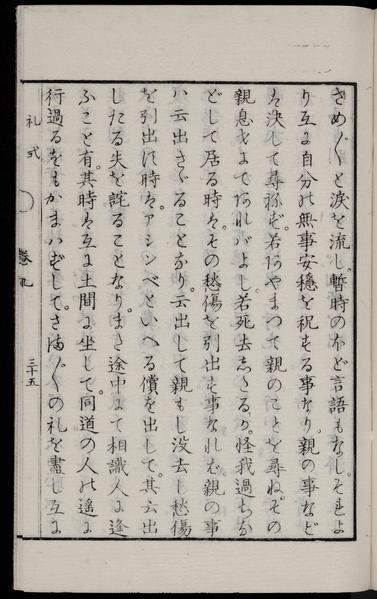 さめ〴〵と涙を流し。暫時のほど言語もなし。それよ
り互に自分の無事安穏を祝する事なり。親の事など
は決して尋ねず。若あやまつて親のことを尋ね。その
親息才にてあればよし。若死去したるか。怪我過ちな
どして居る時は。その愁傷を引出す事なれば親の事
ハ云出さゞることなり。云出して親もし没去し愁傷
を引出す時は。アシンベといへる償を出して。其云出
したる失を詫ることなり。また途中にて相識人に逢
ふこと有。其時は互に土間に坐して。同道の人の遙に
行過るをもかまハずして。さま〴〵の礼を盡し互に
礼式
巻九
三十五